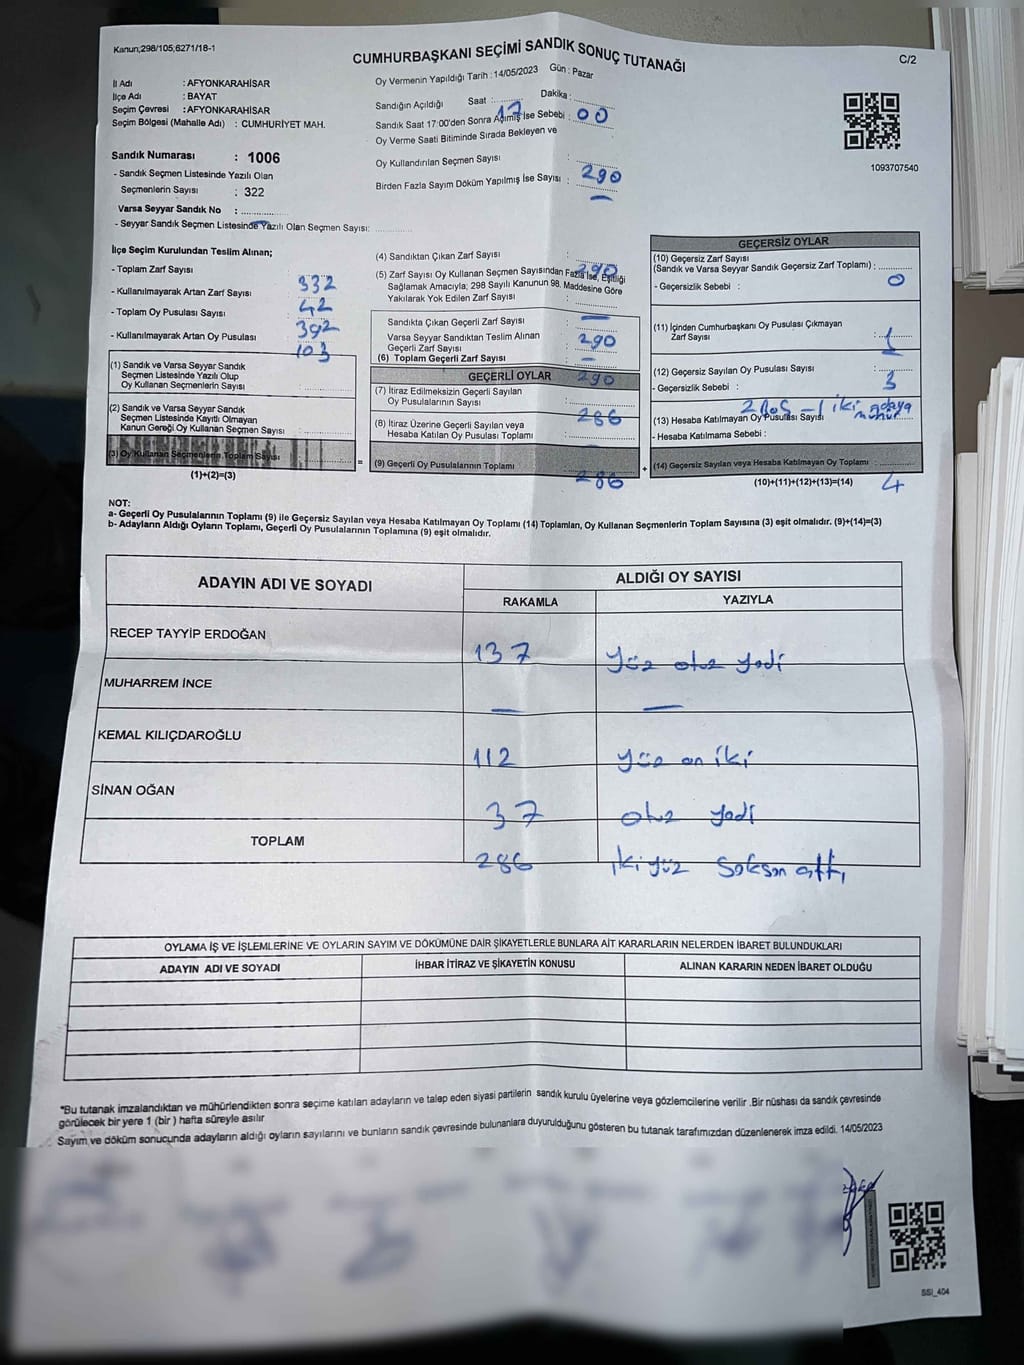 Kanun;298/105,6271/18-1
CUMHURBAŞKANI SEÇİMİ SANDIK SONUÇ TUTANAĞI
C/2
İl Adı : AFYONKARAHİSAR
İlçe Adı : BAYAT
Seçim Çevresi : AFYONKARAHİSAR
Seçim Bölgesi (Mahalle Adı) : CUMHURİYET MAH.
Sandık Numarası : 1006
- Sandık Seçmen Listesinde Yazılı Olan
Seçmenlerin Sayısı : 322
Varsa Seyyar Sandık No : —
- Seyyar Sandık Seçmen Listesinde Yazılı Olan Seçmen Sayısı:
Oy Vermenin Yapıldığı Tarih : 14/05/2023 Gün : Pazar
Sandığın Açıldığı Saat : 17 Dakika : 00
Sandık Saat 17:00'den Sonra Açılmış İse Sebebi :
Oy Verme Saati Bitiminde Sırada Bekleyen ve
Oy Kullandırılan Seçmen Sayısı : 290
Birden Fazla Sayım Döküm Yapılmış İse Sayısı : —
1093707540
İlçe Seçim Kurulundan Teslim Alınan;
- Toplam Zarf Sayısı 332
- Kullanılmayarak Artan Zarf Sayısı 42
- Toplam Oy Pusulası Sayısı 392
- Kullanılmayarak Artan Oy Pusulası 103
(1) Sandık ve Varsa Seyyar Sandık
Seçmen Listesinde Yazılı Olup
Oy Kullanan Seçmenlerin Sayısı :
(2) Sandık ve Varsa Seyyar Sandık
Seçmen Listesine Kayıtlı Olmayan
Kanun Gereği Oy Kullanan Seçmen Sayısı :
(3) Oy Kullanan Seçmenlerin Toplam Sayısı
(1)+(2)=(3)
(4) Sandıktan Çıkan Zarf Sayısı : 290
(5) Zarf Sayısı Oy Kullanan Seçmen Sayısından Fazla İse, Eşitliği
Sağlamak Amacıyla; 298 Sayılı Kanunun 98. Maddesine Göre
Yakılarak Yok Edilen Zarf Sayısı : —
Sandıkta Çıkan Geçerli Zarf Sayısı : 290
Varsa Seyyar Sandıktan Teslim Alınan
Geçerli Zarf Sayısı : —
(6) Toplam Geçerli Zarf Sayısı : 290
GEÇERLİ OYLAR
(7) İtiraz Edilmeksizin Geçerli Sayılan
Oy Pusulalarının Sayısı : 286
(8) İtiraz Üzerine Geçerli Sayılan veya
Hesaba Katılan Oy Pusulası Toplamı : —
(9) Geçerli Oy Pusulalarının Toplamı 286
GEÇERSİZ OYLAR
(10) Geçersiz Zarf Sayısı
(Sandık ve Varsa Seyyar Sandık Geçersiz Zarf Toplamı) : 0
- Geçersizlik Sebebi :
(11) İçinden Cumhurbaşkanı Oy Pusulası Çıkmayan
Zarf Sayısı : 1
(12) Geçersiz Sayılan Oy Pusulası Sayısı : 3
- Geçersizlik Sebebi : 2 Boş - 1 iki adaya mühür
(13) Hesaba Katılmayan Oy Pusulası Sayısı
- Hesaba Katılmama Sebebi :
(14) Geçersiz Sayılan veya Hesaba Katılmayan Oy Toplamı :
(10)+(11)+(12)+(13)=(14) 4
NOT:
a- Geçerli Oy Pusulalarının Toplamı (9) ile Geçersiz Sayılan veya Hesaba Katılmayan Oy Toplamı (14) Toplamları, Oy Kullanan Seçmenlerin Toplam Sayısına (3) eşit olmalıdır. (9)+(14)=(3)
b- Adayların Aldığı Oyların Toplamı, Geçerli Oy Pusulalarının Toplamına (9) eşit olmalıdır.
ADAYIN ADI VE SOYADI
ALDIĞI OY SAYISI
RAKAMLA YAZIYLA
RECEP TAYYİP ERDOĞAN 137 yüz otuz yedi
MUHARREM İNCE — —
KEMAL KILIÇDAROĞLU 112 yüz on iki
SİNAN OĞAN 37 otuz yedi
TOPLAM 286 ikiyüz seksen altı
OYLAMA İŞ VE İŞLEMLERİNE VE OYLARIN SAYIM VE DÖKÜMÜNE DAİR ŞİKAYETLERLE BUNLARA AİT KARARLARIN NELERDEN İBARET BULUNDUKLARI
ADAYIN ADI VE SOYADI İHBAR İTİRAZ VE ŞİKAYETİN KONUSU ALINAN KARARIN NEDEN İBARET OLDUĞU
*Bu tutanak imzalandıktan ve mühürlendikten sonra seçime katılan adayların ve talep eden siyasi partilerin sandık kurulu üyelerine veya gözlemcilerine verilir .Bir nüshası da sandık çevresinde
görülecek bir yere 1 (bir ) hafta süreyle asılır
Sayım ve döküm sonucunda adayların aldığı oyların sayılarını ve bunların sandık çevresinde bulunanlara duyurulduğunu gösteren bu tutanak tarafımızdan düzenlenerek imza edildi. 14/05/2023
SSI_404